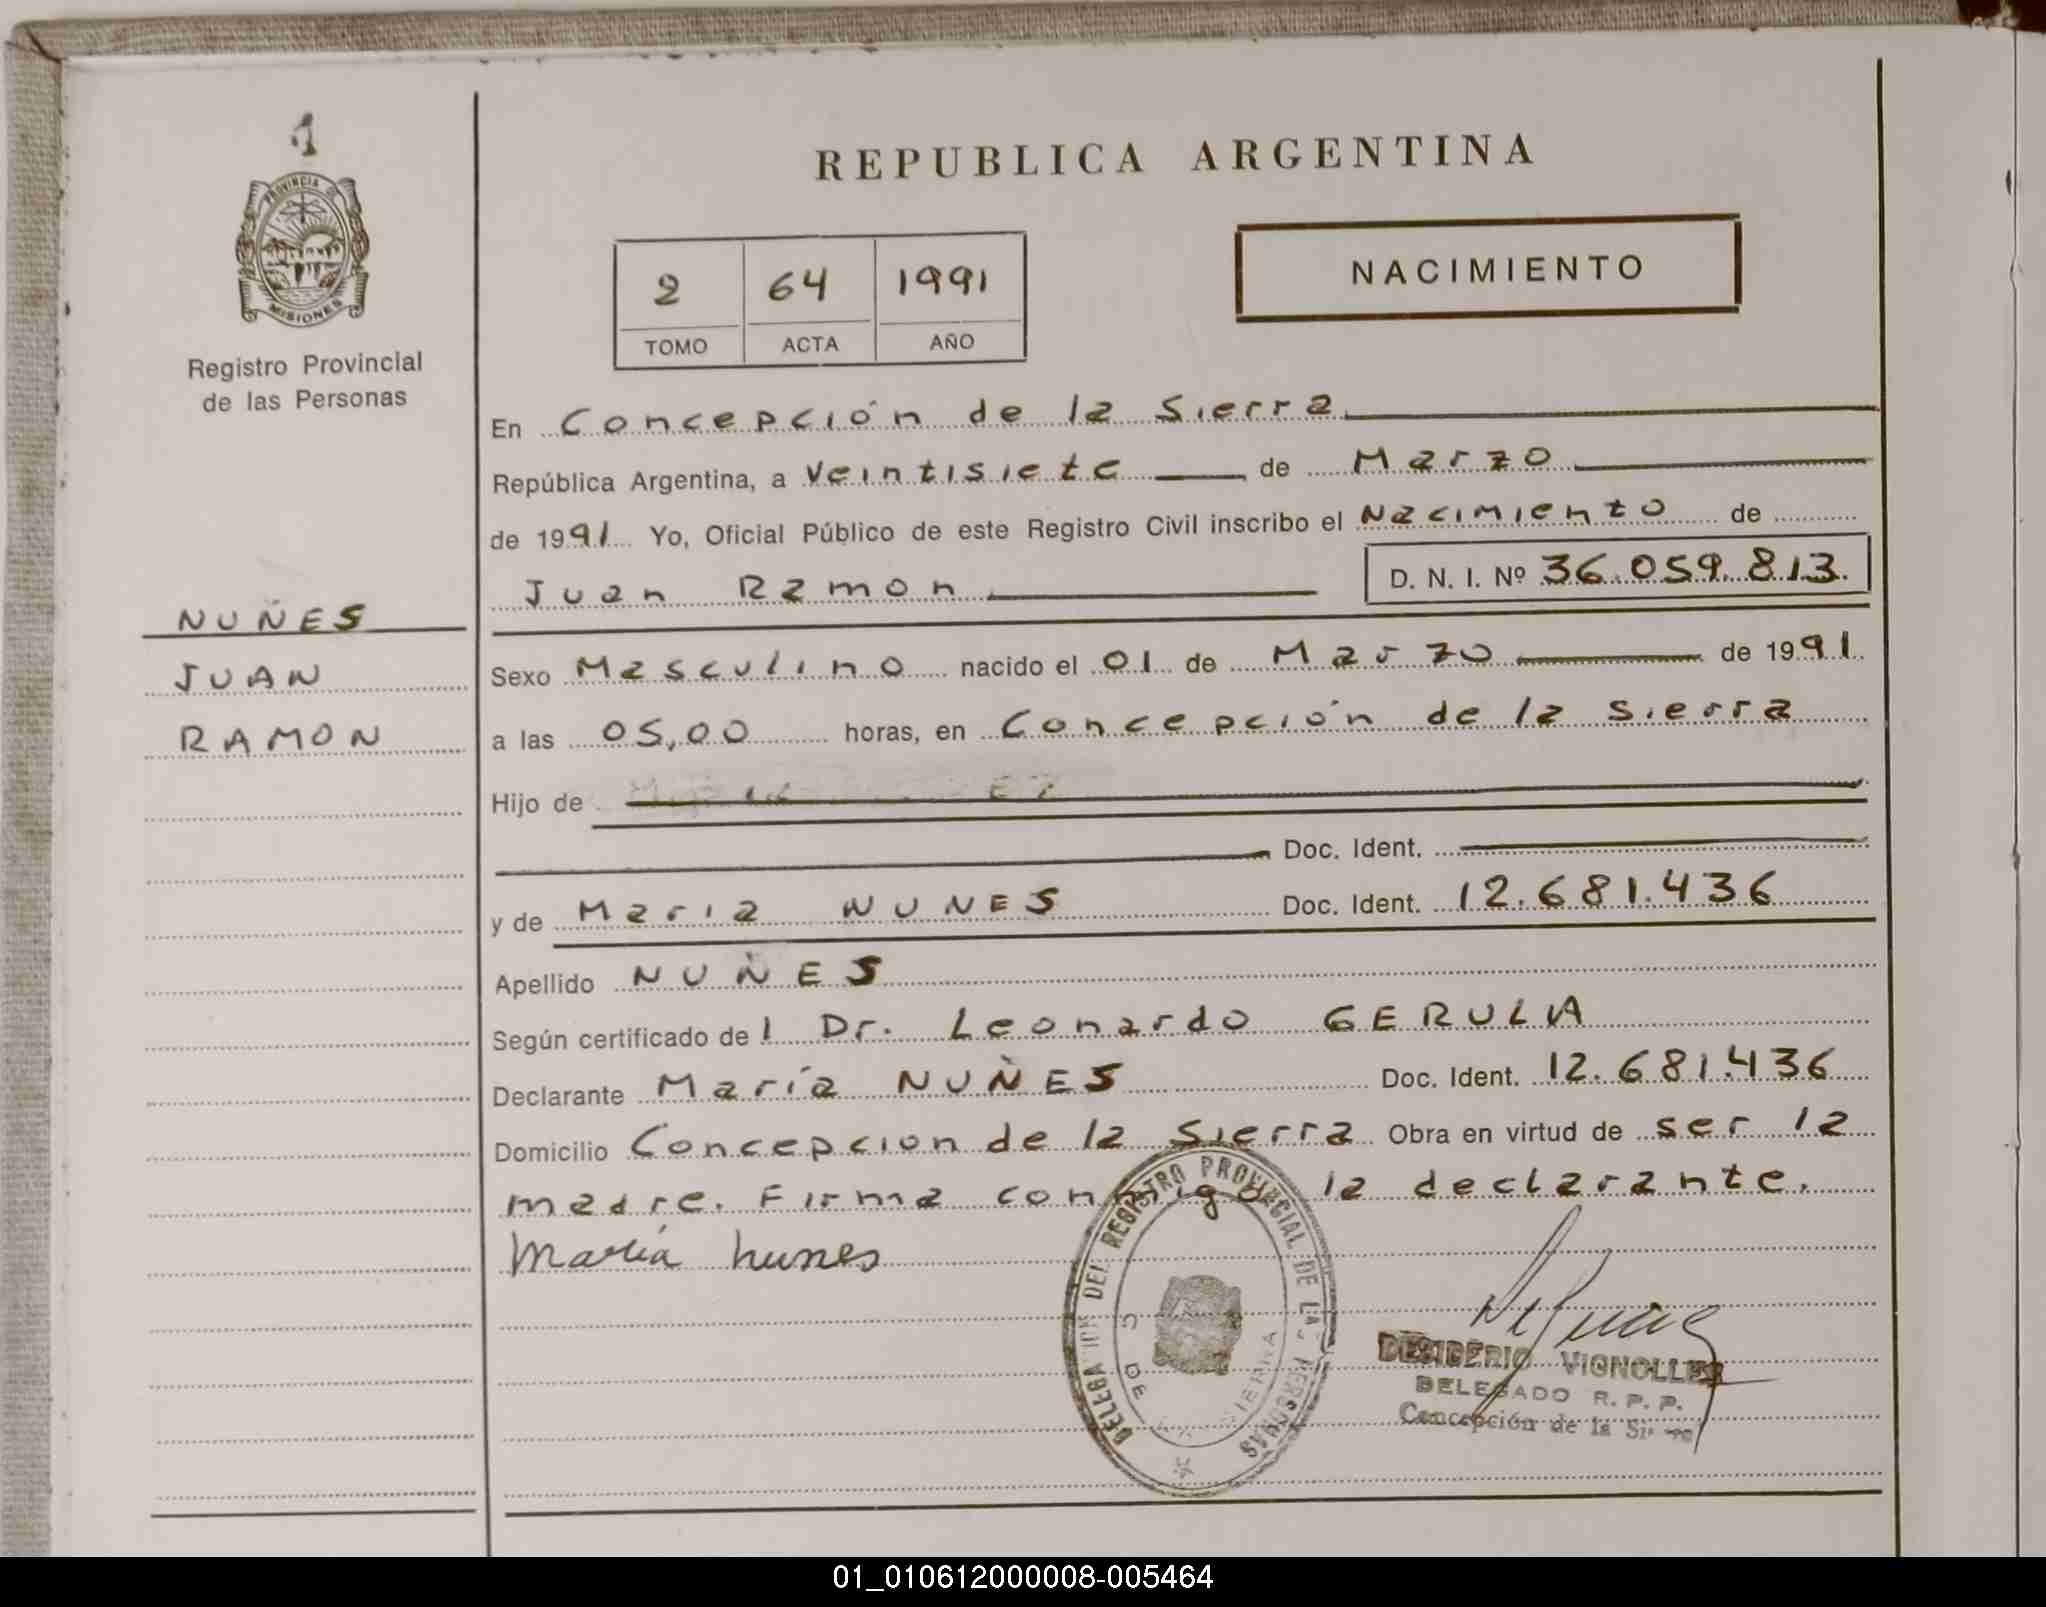 1
PROVINCIA DE
MISIONES
Registro Provincial
de las Personas
NUÑES
JUAN
RAMON
REPUBLICA ARGENTINA
2 64 1991
TOMO ACTA AÑO
NACIMIENTO
En Concepción de la Sierra
República Argentina, a Veintisiete de Marzo
de 1991 Yo, Oficial Público de este Registro Civil inscribo el Nacimiento de
Juan Ramon D. N. I. Nº 36.059.813.
Sexo Masculino nacido el 01 de Marzo de 1991.
a las 05,00 horas, en Concepción de la Sierra
Hijo de
Doc. Ident.
y de Maria NUNES Doc. Ident. 12.681.436
Apellido NUÑES
Según certificado de l Dr. Leonardo GERULA
Declarante María NUÑES Doc. Ident. 12.681.436
Domicilio Concepcion de la Sierra Obra en virtud de ser la
madre. Firma conmigo la declarante.
María nunes
DELEGACION DEL REGISTRO PROVINCIAL DE LAS PERSONAS
C. DE LA SIERRA
DESIDERIO VIGNOLLES
DELEGADO R. P. P.
Concepción de la Sierra
01_010612000008-005464